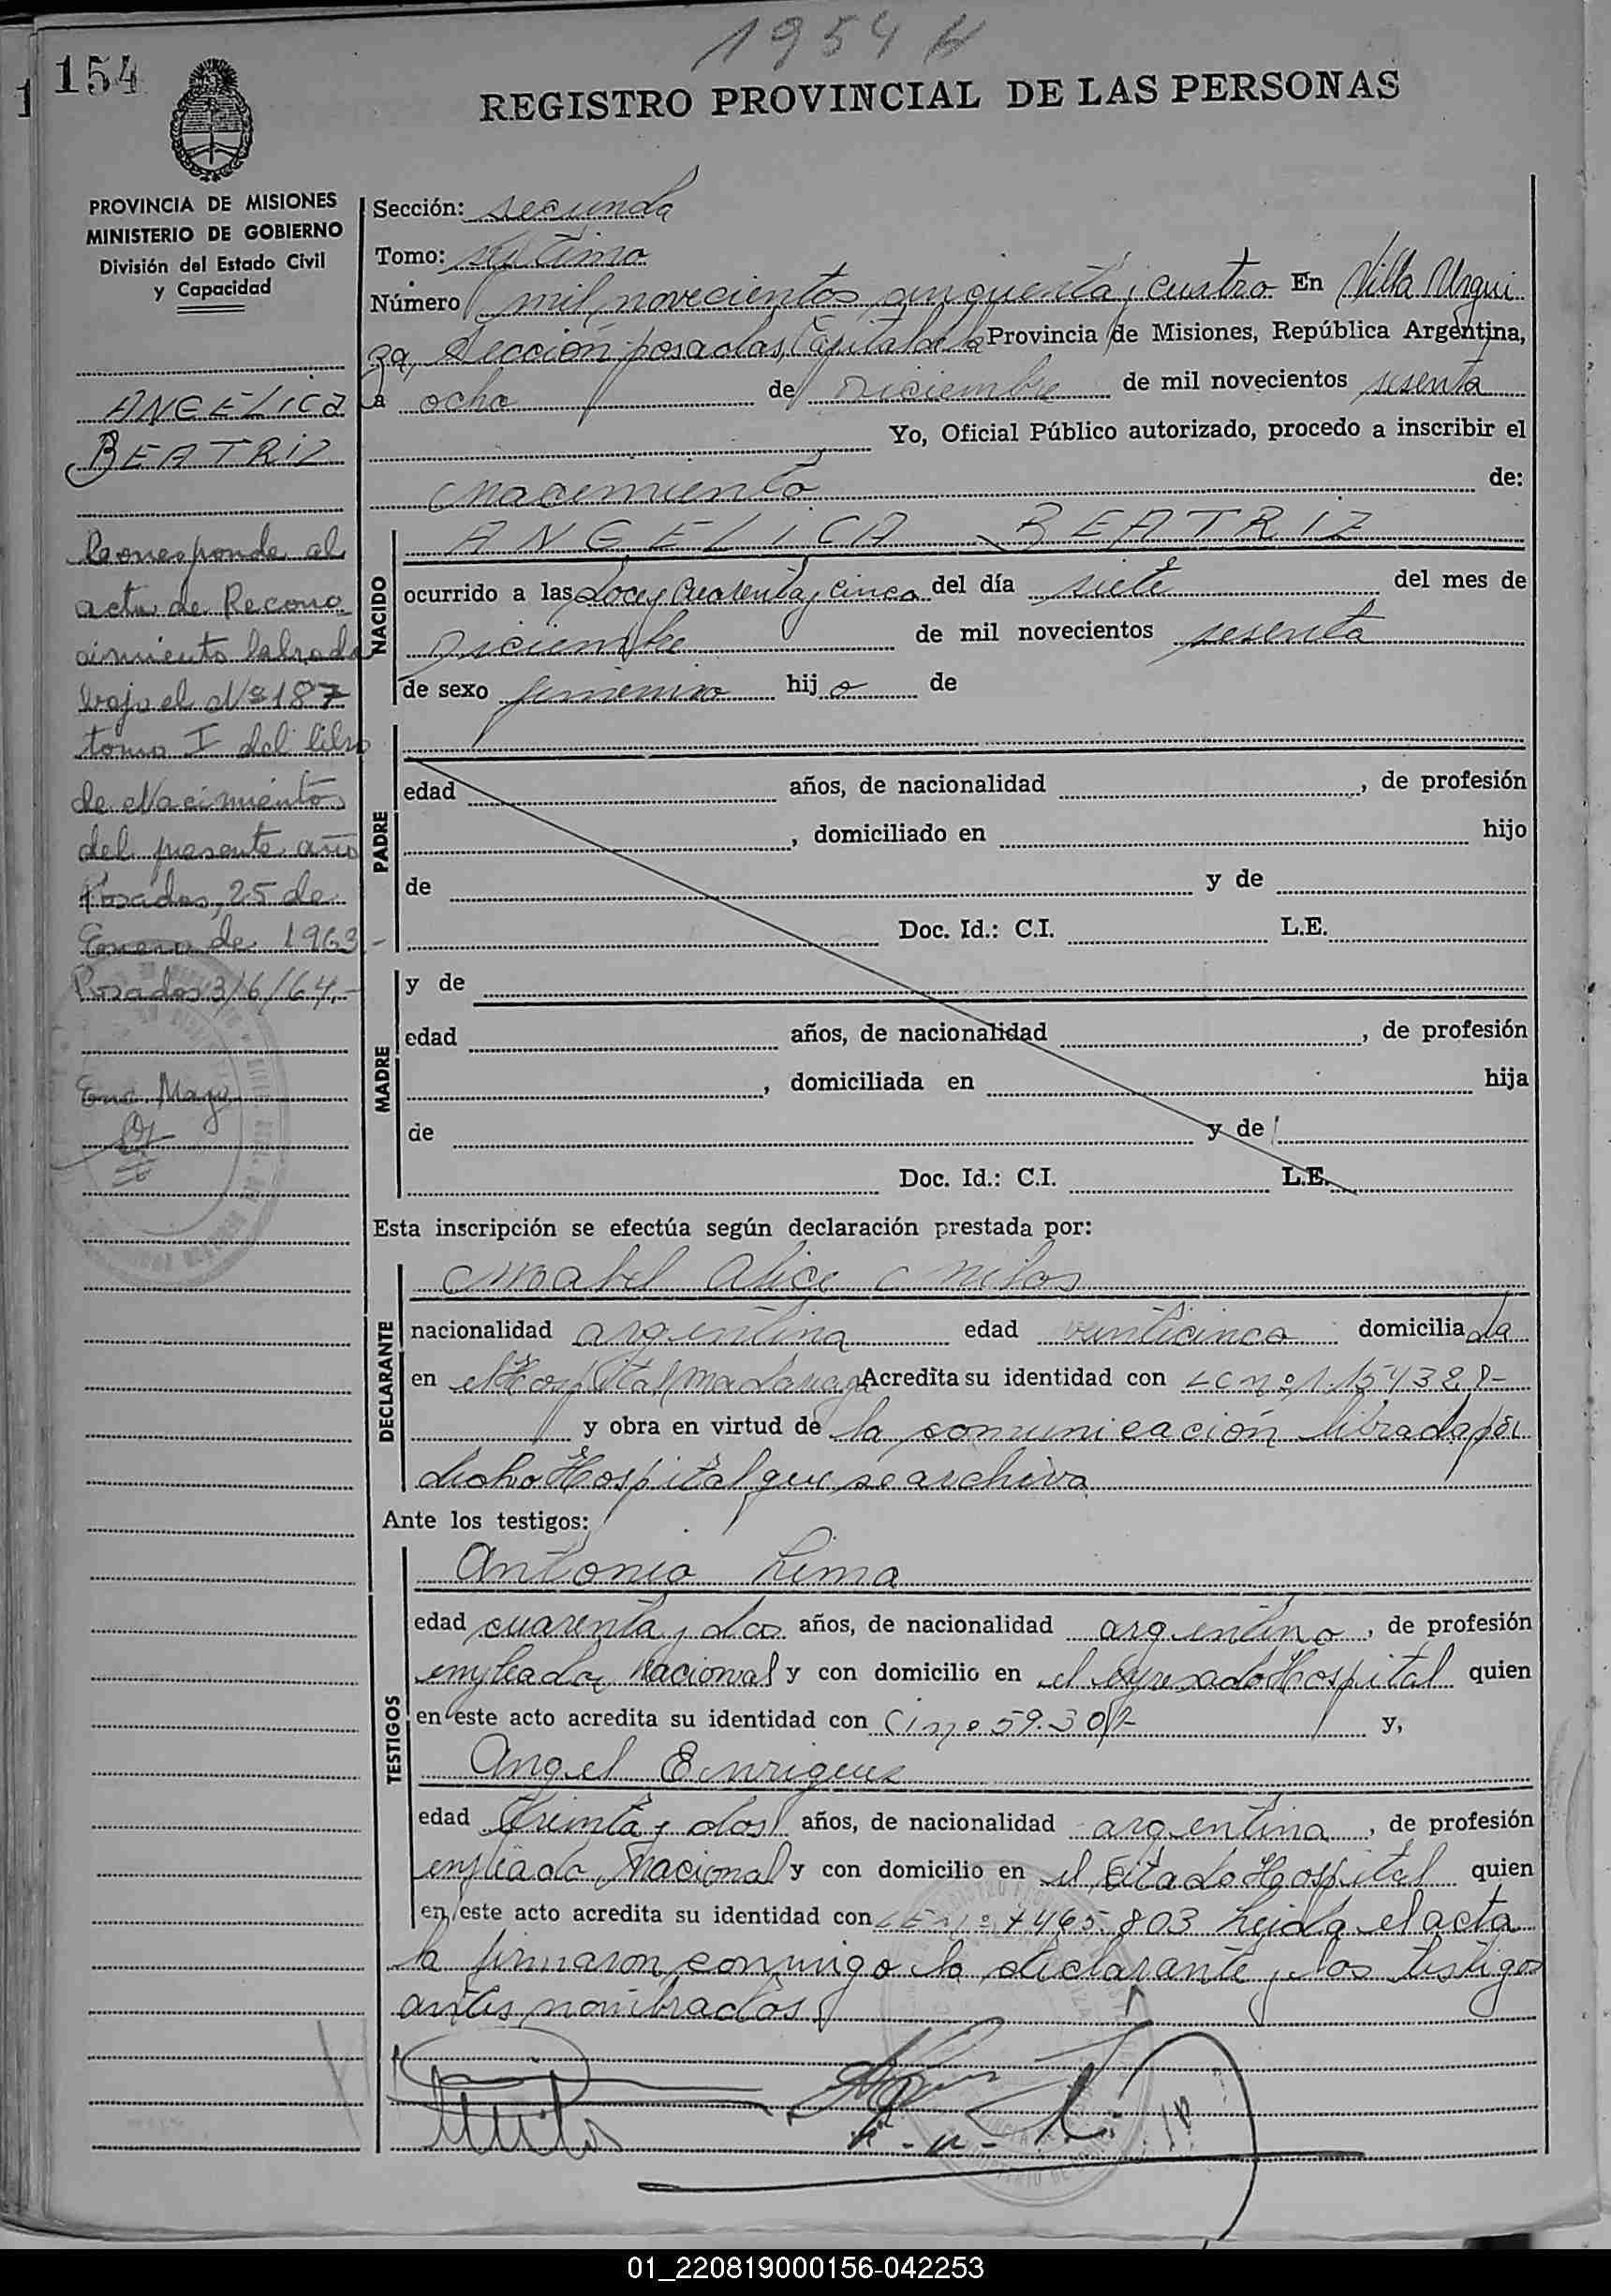 1954 H
154
REGISTRO PROVINCIAL DE LAS PERSONAS
PROVINCIA DE MISIONES
MINISTERIO DE GOBIERNO
División del Estado Civil
y Capacidad
ANGELICA
BEATRIZ
Corresponde al
acta de Recono
cimiento labrada
bajo el Nº 187
tomo I del libro
de Nacimientos
del presente año
Posadas, 25 de
Enero de 1963.-
Posadas 3/6/64.-
Enc. Mayo
Sección: segunda
Tomo: septimo
Número mil novecientos cincuenta y cuatro En Villa Urqui
za, Sección posadas, Capital de la Provincia de Misiones, República Argentina,
a ocho de Diciembre de mil novecientos sesenta
Yo, Oficial Público autorizado, procedo a inscribir el
nacimiento de:
NACIDO
ANGELICA BEATRIZ
ocurrido a las doce y cuarenta y cinco del día siete del mes de
Diciembre de mil novecientos sesenta
de sexo femenino hij a de
PADRE
edad años, de nacionalidad , de profesión
, domiciliado en hijo
de y de
Doc. Id.: C.I. L.E.
MADRE
y de
edad años, de nacionalidad , de profesión
, domiciliada en hija
de y de
Doc. Id.: C.I. L.E.
Esta inscripción se efectúa según declaración prestada por:
DECLARANTE
Mabel Alice Milos
nacionalidad argentina edad veinticinco domicilia da
en el Hospital Madariaga Acredita su identidad con LC nº 1.154328-
y obra en virtud de la comunicación librada por
dicho Hospital que se archiva
Ante los testigos:
TESTIGOS
Antonio Lima
edad cuarenta y dos años, de nacionalidad argentino, de profesión
empleado Nacional y con domicilio en el expresado Hospital quien
en este acto acredita su identidad con CI nº 59.302 y,
Angel Enriquez
edad treinta y dos años, de nacionalidad argentina, de profesión
empleado Nacional y con domicilio en el citado Hospital quien
en este acto acredita su identidad con LE nº 7465.803 Leida el acta
la firmaron conmigo la declarante y los testigos
antes nombrados
Milos
01_220819000156-042253